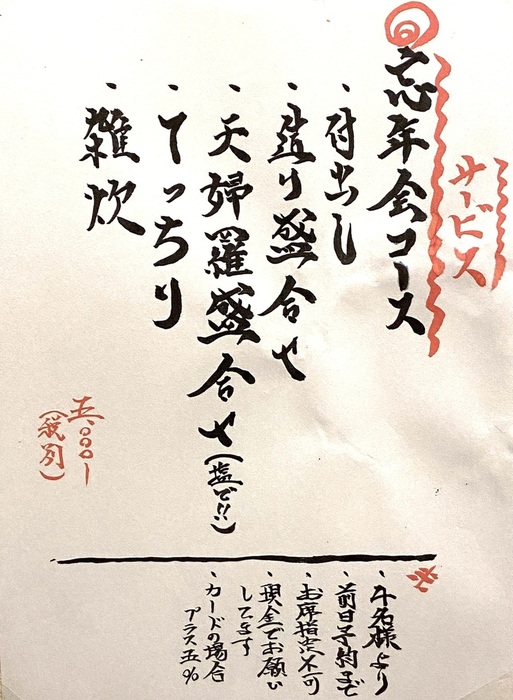 サービス
◎忘年会コース
・付出し
・造り盛合せ
・天婦羅盛合せ(塩で!!)
・てっちり
・雑炊
五.000ー
(税別)
※
・名様より
・前日予約まで
・お席指定不可
・現金でお願い
してます
・カードの場合
プラス五%